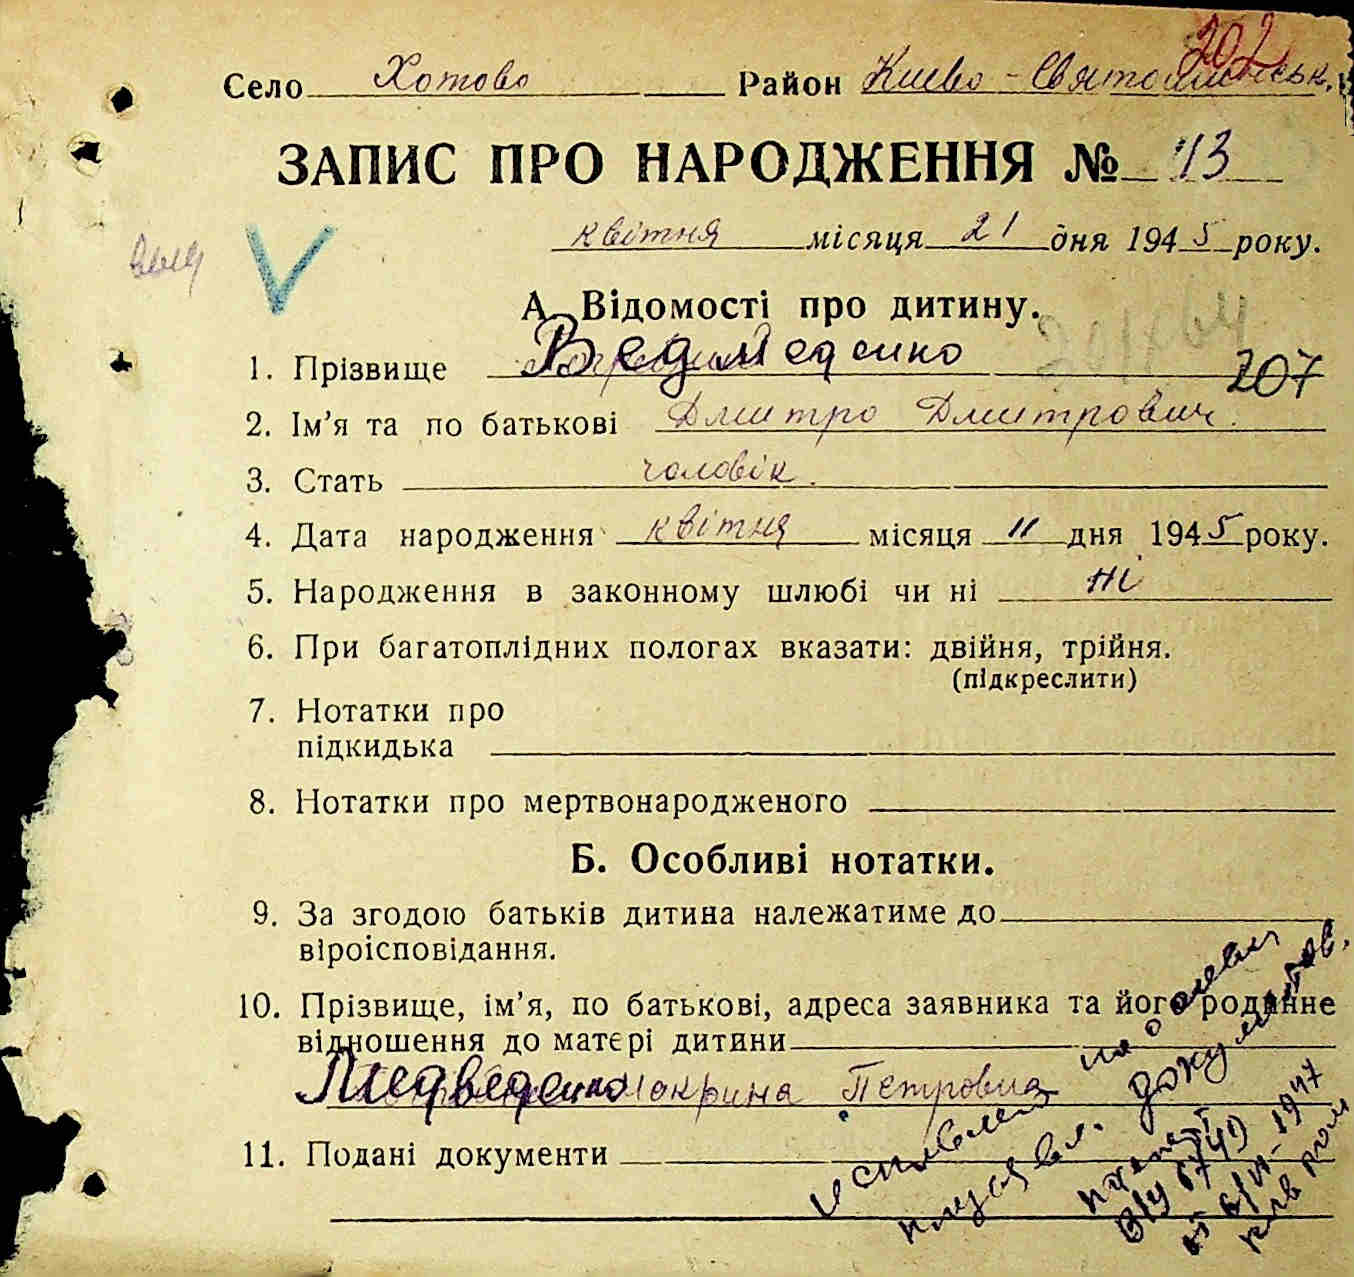 202
Село Хотово Район Киево-Святошинськ.
ЗАПИС ПРО НАРОДЖЕННЯ № 43
квітня місяця 21 дня 1945 року.
А. Відомості про дитину.
1. Прізвище Ведмеденко
207
2. Ім'я та по батькові Дмитро Дмитрович.
3. Стать чоловік.
4. Дата народження квітня місяця 11 дня 1945 року.
5. Народження в законному шлюбі чи ні ні
6. При багатоплідних пологах вказати: двійня, трійня.
(підкреслити)
7. Нотатки про
підкидька
8. Нотатки про мертвонародженого
Б. Особливі нотатки.
9. За згодою батьків дитина належатиме до
віроісповідання.
10. Прізвище, ім'я, по батькові, адреса заявника та його родинне
відношення до матері дитини
Медведенко Мокрина Петровна
11. Подані документи
исправлено на основан
предъявл. документов.